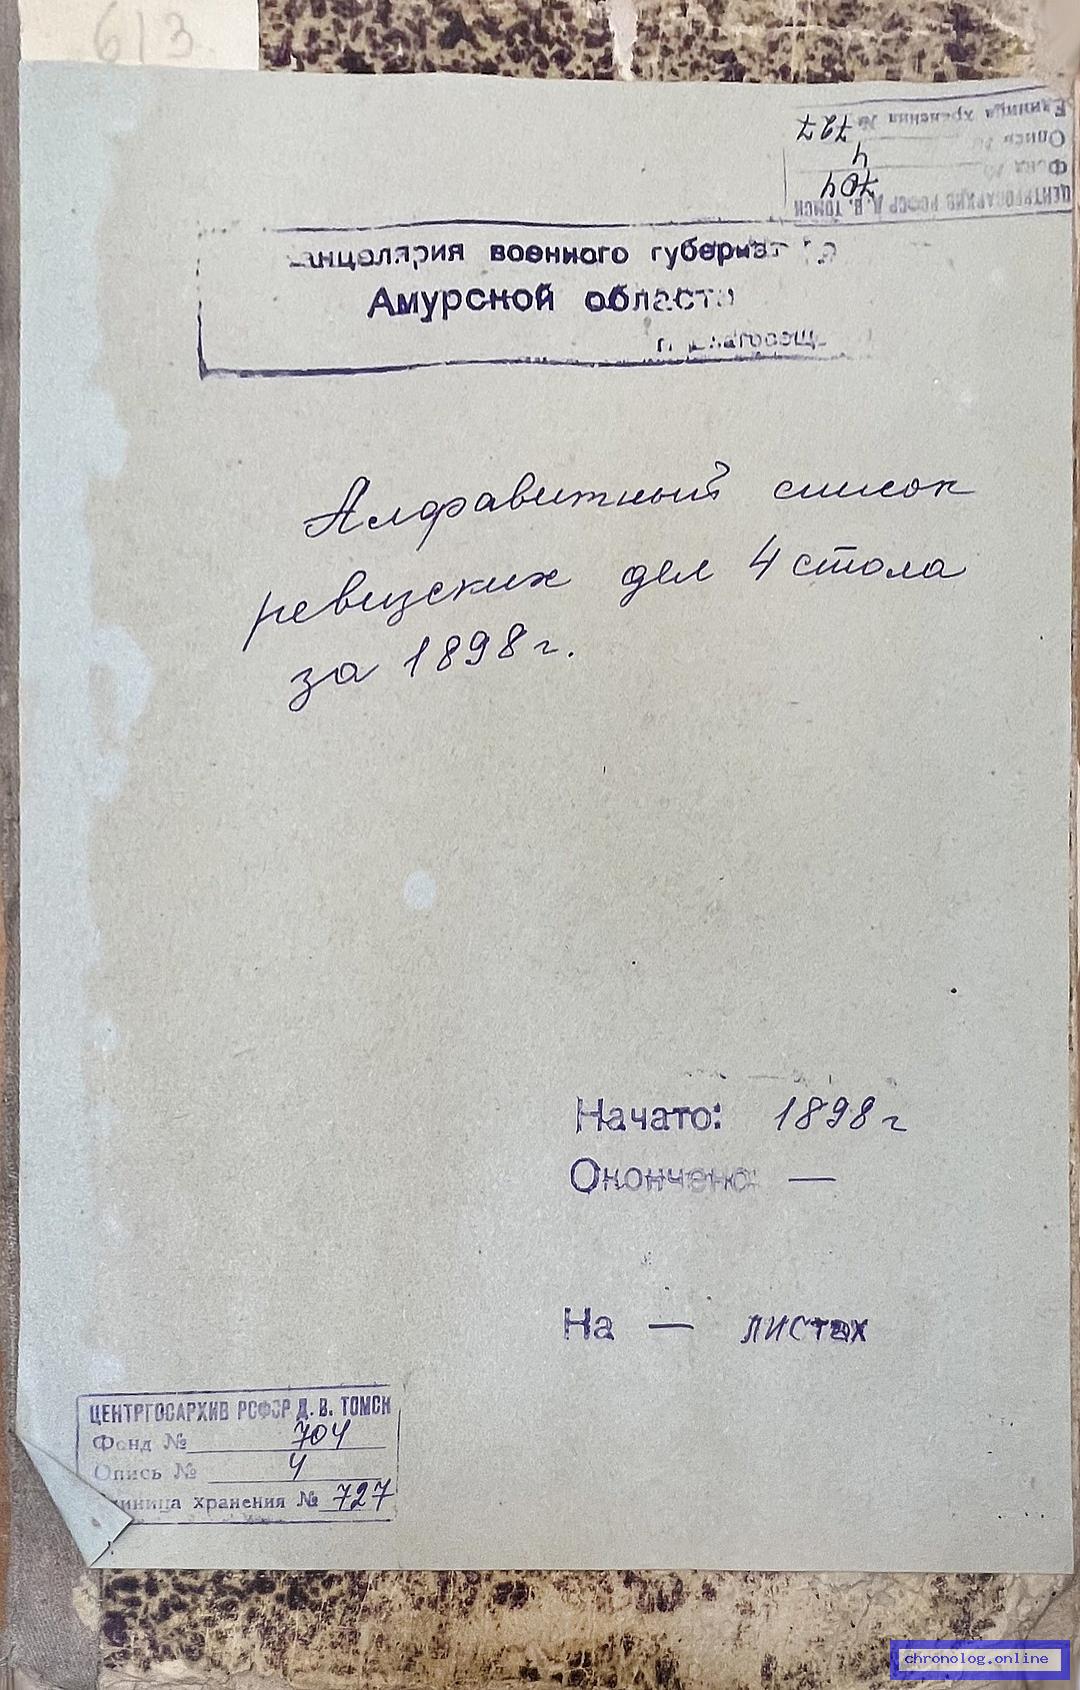 613
Единица хранения № 727
Опись № 4
Фонд № 704
ЦЕНТРГОСАРХИВ РСФСР Д. В. ТОМСК
анцелярия военного губернат
Амурской области
г. лаговещ
Алфавитный список
ревизских дел 4 стола
за 1898 г.
Начато: 1898 г
Окончено: —
На — листах
ЦЕНТРГОСАРХИВ РСФСР Д. В. ТОМСК
Фонд № 704
Опись № 4
диница хранения № 727
chronolog.online